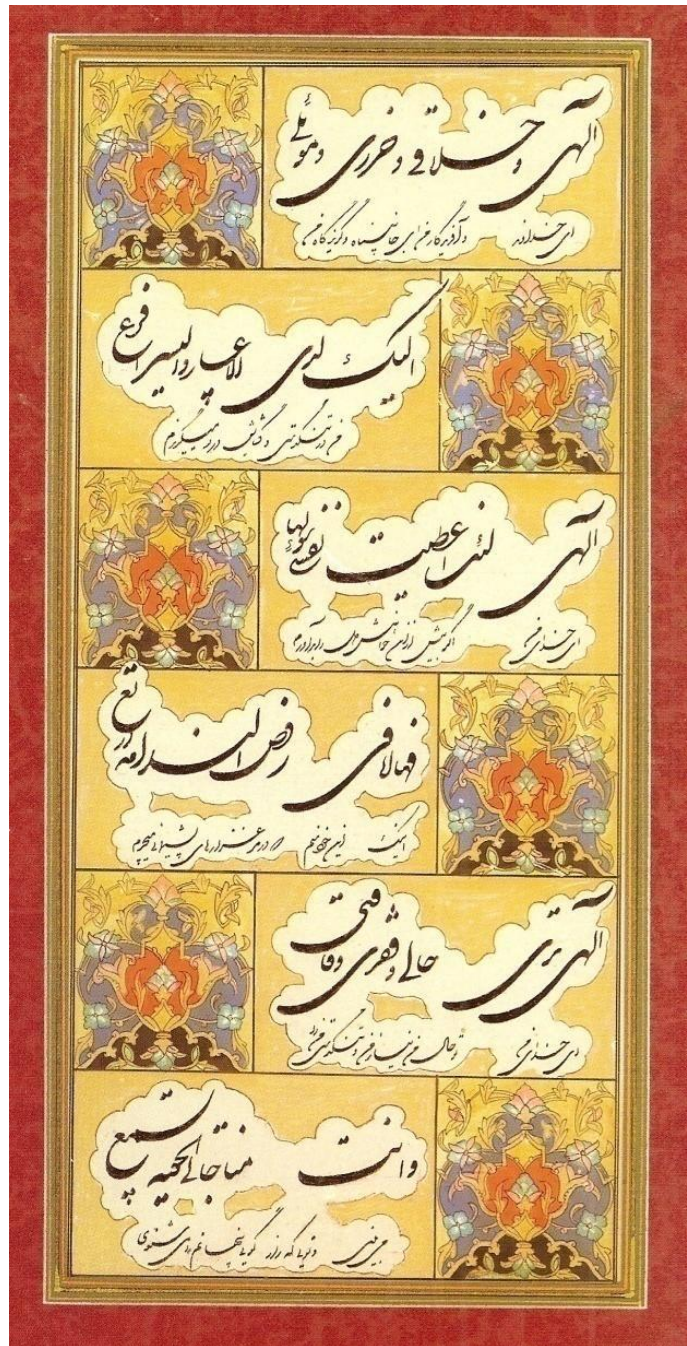 الهی و خلاقی و حرزی و موئلی
ای خداوند و آفریدگار من ای جان پناه و گریزگاه من
الیک لدی الاعسار والیسر افزع
من در تنگدستی و گشایش در تو میگریزم
الهی لئن اعطیت نفسی سولها
ای خدای من اگر بیش ازین خواهش دل را برآورم
فها انا فی روض الندامه ارتع
اینک این منم در مرغزارهای پشیمانی میچرم
الهی تری حالی و فقری و فاقتی
ای خدای من تو حال من نیاز من و تنگدستی من را
وانت مناجاتی الخفیه تسمع
می بینی و تویی که راز گویی پنهانم را می شنوی